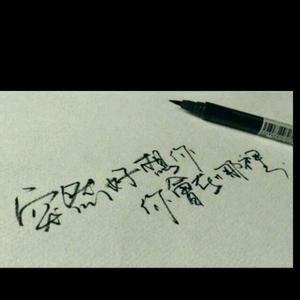 突然好想你
你會在那裡